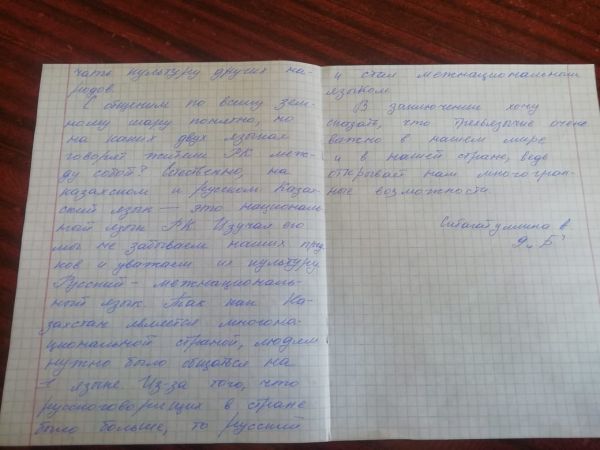 чать культуру других на-
родов.
С общеним по всему зем-
ному шару понятно, но
на каких двух языках
говорят жители РК меж-
ду собой? Естественно, на
казахском и русском. Казах-
ский язык — это националь-
ный язык РК. Изучая его
мы не забываем наших пред
ков и уважаем их культуру.
Русский - межнациональ-
ный язык. Так как Ка-
захстан является многона-
циональной страной, людям
нужно было общаться на
1 языке. Из-за того, что
русскоговорящих в стране
было больше, то русский
и стал межнациональным
языком.
В заключение хочу
сказать, что трехъязычие очень
важно в нашем мире
и в нашей стране, ведь
открывает нам многогран-
ные возможности.
Сибагатуллина А.
9 „Б"